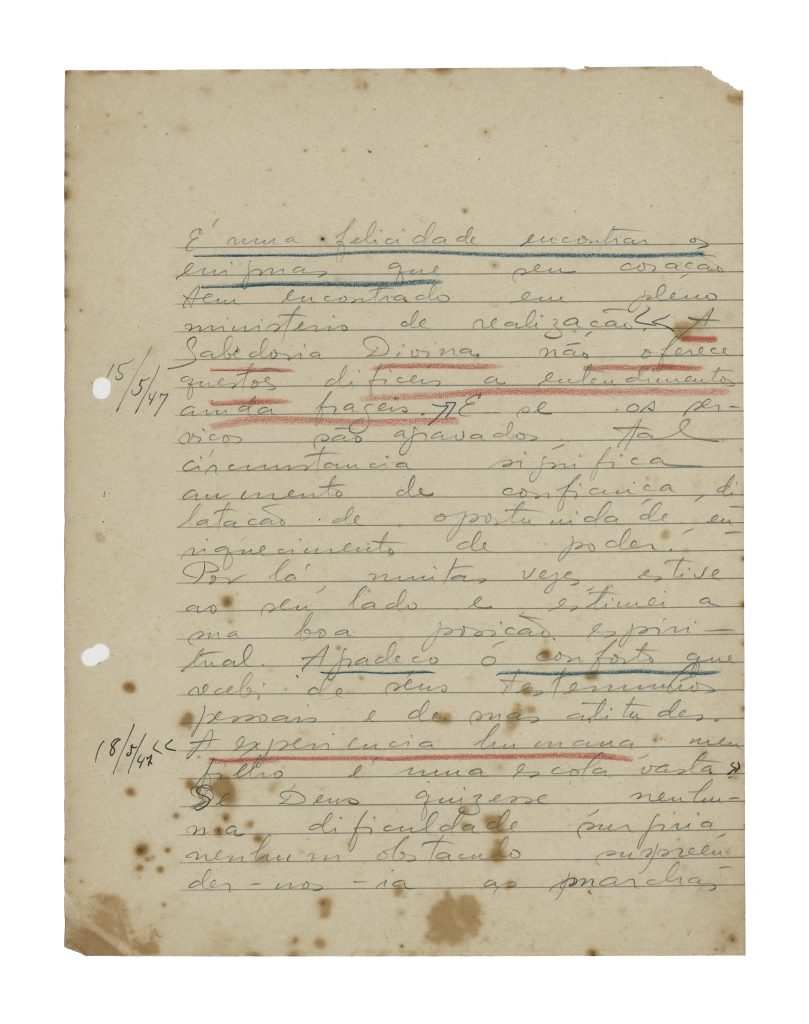 É uma felicidade encontrar os
enigmas que seu coração
tem encontrado em pleno
ministerio de realização << A
Sabedoria Divina não oferece
15/5/47
questões dificeis a entendimentos
ainda frageis. >> E se os ser-
viços são agravados, tal
circumstancia significa
aumento de confiança, di
latação de oportunidade, en
riquecimento de poder.
Por lá, muitas vezes, estive
ao seu lado e estimei a
sua boa posição espiri-
tual. Agradeço o conforto que
recebi de seus testemunhos
pessoais e de suas atitudes.
18/5/47 << A experiencia humana, meu
filho é uma escola vasta >>
Se Deus quizesse nenhu-
ma dificuldade surgiria
nenhum obstaculo surpreen
der-nos-ia as marchas